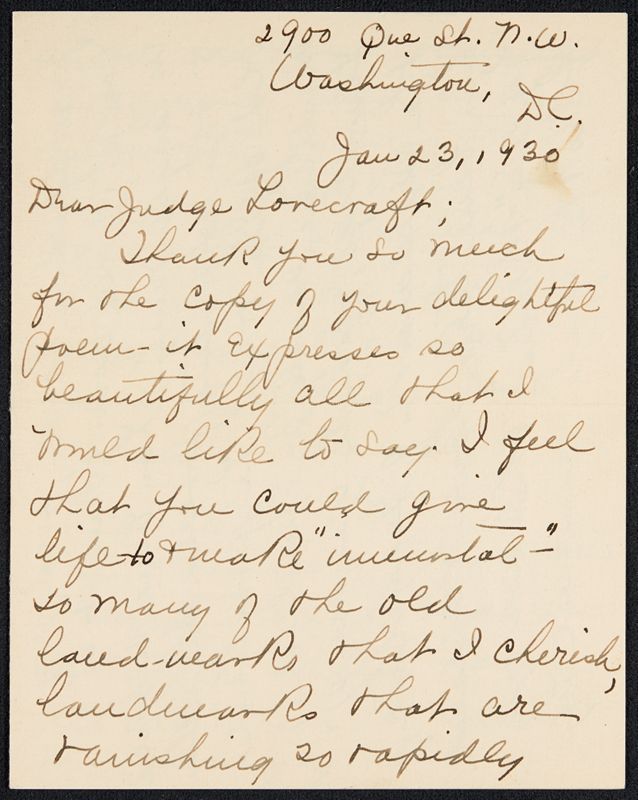 2900 Que St. N.W.
Washington,
D.C.
Jan 23, 1930
Dear Judge Lovecraft;
Thank you so much
for the copy of your delightful
poem - it expresses so
beautifully all that I
would like to say. I feel
that you could give
life to & make "immortal -"
so many of the old
land-marks that I cherish,
landmarks that are
vanishing so rapidly